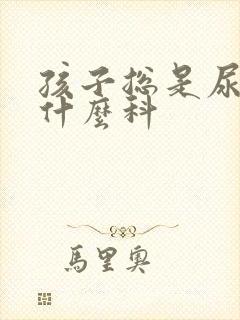 孩子總是尿
什麼科
馬里奧